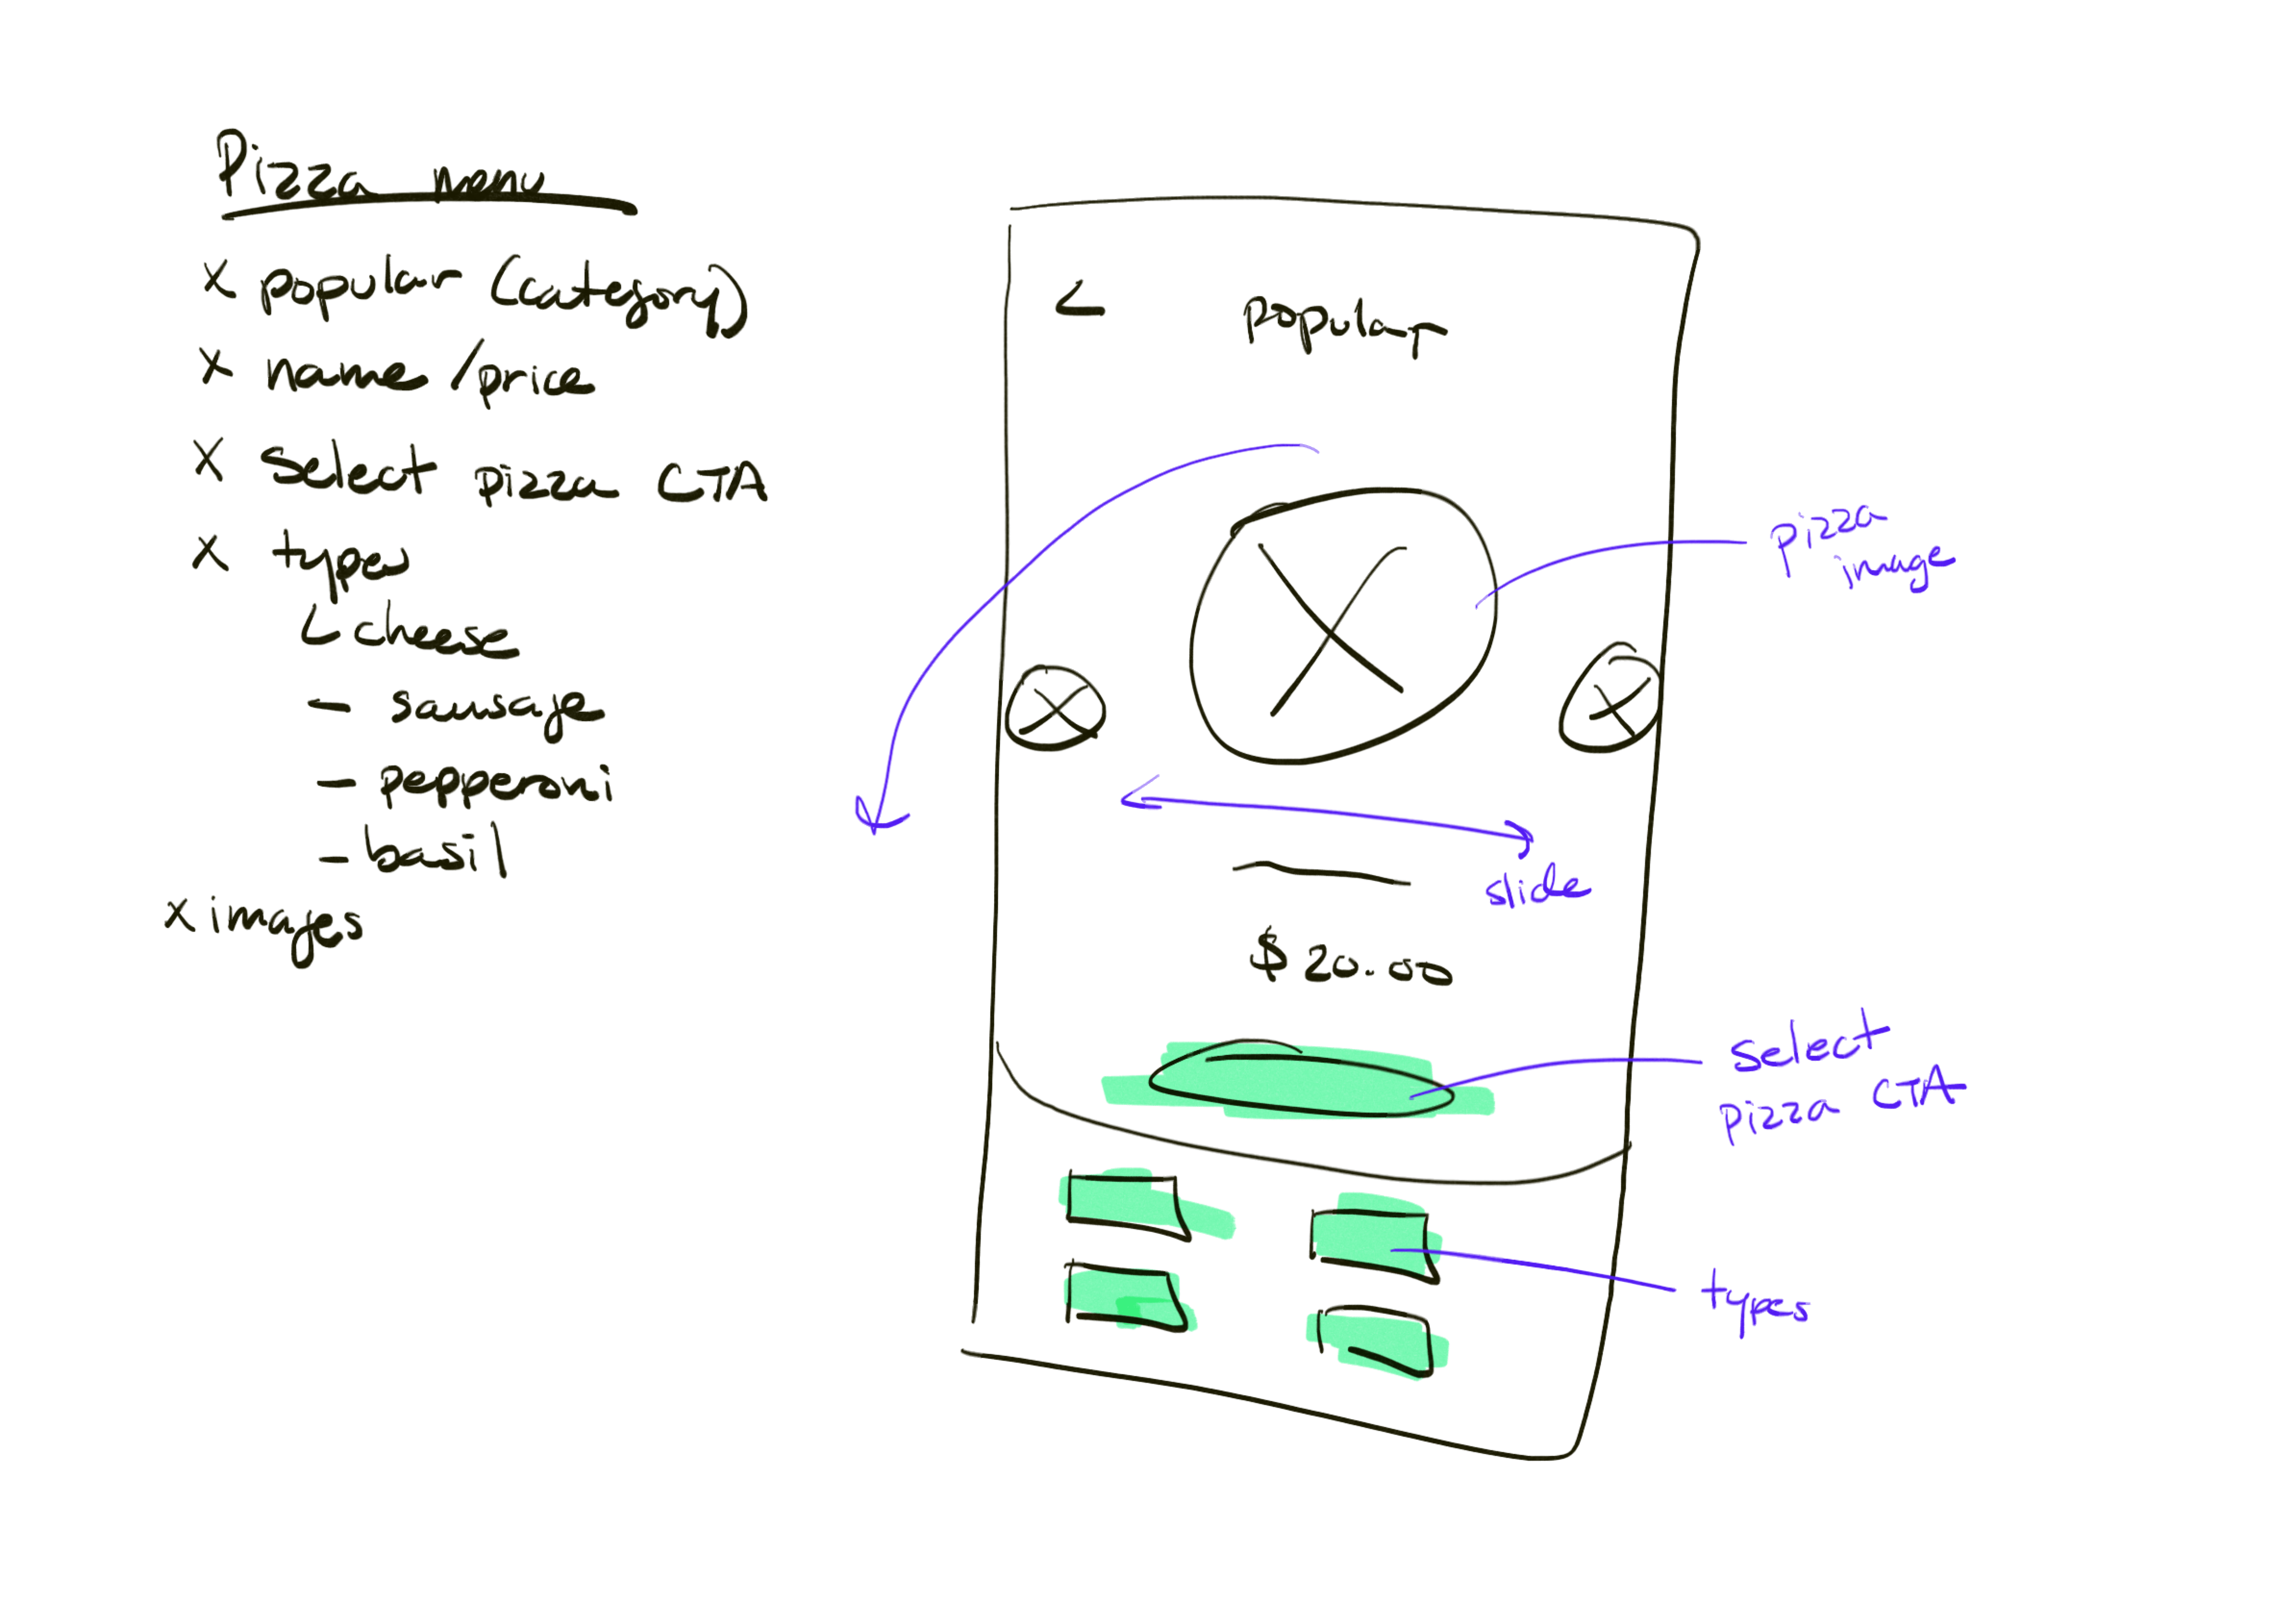 Pizza menu
x popular (category)
x name/price
x select pizza CTA
x types
cheese
- sausage
- pepperoni
- basil
x images
popular
pizza
image
slide
$20.00
select
pizza CTA
types